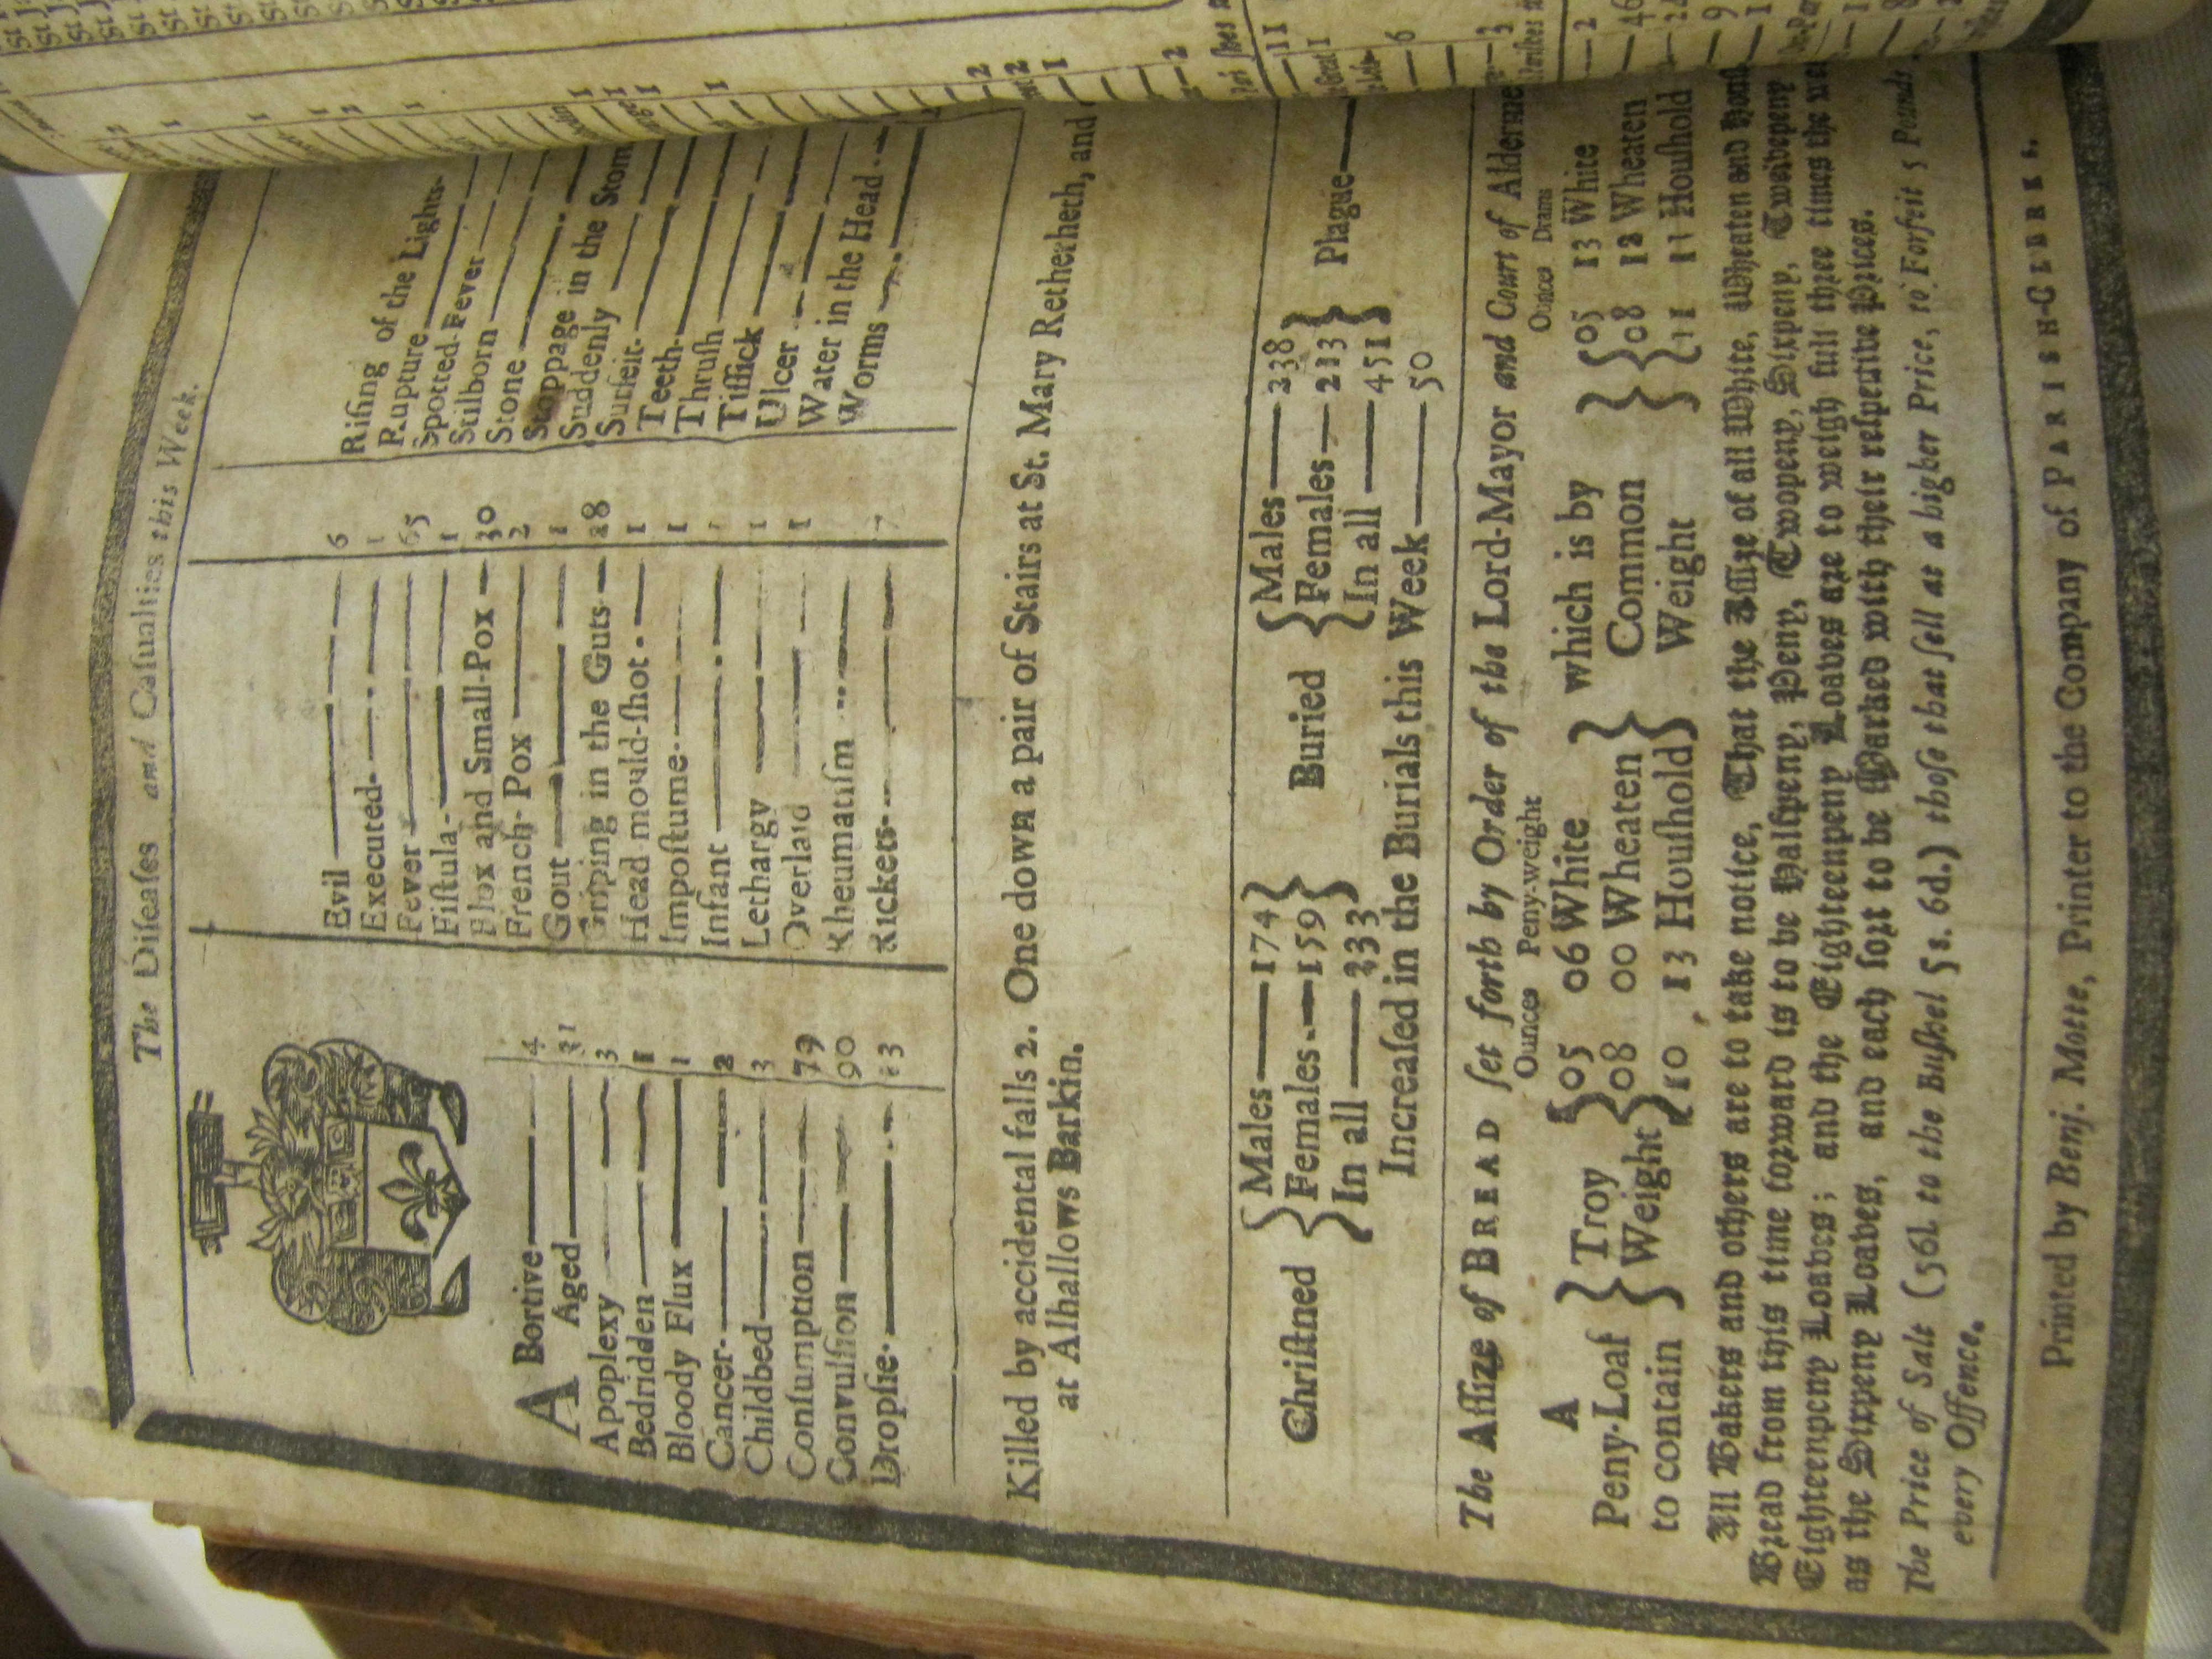 The Diſeaſes and Caſualties this Week.
ABortive 4
Aged 31
Apoplexy 3
Bedridden 1
Bloody Flux 1
Cancer 2
Childbed 3
Conſumption 79
Convulſion 90
Dropſie 13
Evil 6
Executed 1
Fever 65
Fiſtula 1
Flox and Small-Pox 30
French-Pox 2
Gout 1
Griping in the Guts 28
Head mould-ſhot 1
Impoſtume 1
Infant
Lethargy 1
Overlaid 1
Rheumatiſm
Rickets 7
Riſing of the Lights
Rupture
Spotted-Fever
Stilborn
Stone
Stoppage in the Stom
Suddenly
Surfeit
Teeth
Thruſh
Tiſſick
Ulcer
Water in the Head
Worms
Killed by accidental falls 2. One down a pair of Stairs at St. Mary Retherheth, and
at Alhallows Barkin.
Chriſtned { Males — 174 Females — 159 In all — 333 } Buried { Males — 238 Females — 213 In all — 451 } Plague —
Increaſed in the Burials this Week — 50
The Aſſize of BREAD ſet forth by Order of the Lord-Mayor and Court of Alderme
Ounces Peny-weight Ounces Drams
A Peny-Loaf to contain } Troy Weight { 05 06 White 08 00 Wheaten 10 13 Houſhold } which is by Common Weight { 05 13 White 08 12 Wheaten 11 11 Houſhold
All Bakers and others are to take notice, That the Aſſize of all White, Wheaten and Houſ
Bread from this time forward is to be Halfpeny, Peny, Twopeny, Sixpeny, Twelvepeny
Eighteenpeny Loaves; and the Eighteenpeny Loaves are to weigh full three times the we
as the Sixpeny Loaves, and each ſort to be Marked with their reſpective Prices.
The Price of Salt (56l. to the Buſhel 5s. 6d.) thoſe that ſell at a bigher Price, to Forfeit 5 Pounds
every Offence.
Printed by Benj. Motte, Printer to the Company of PARISH-CLERKS.